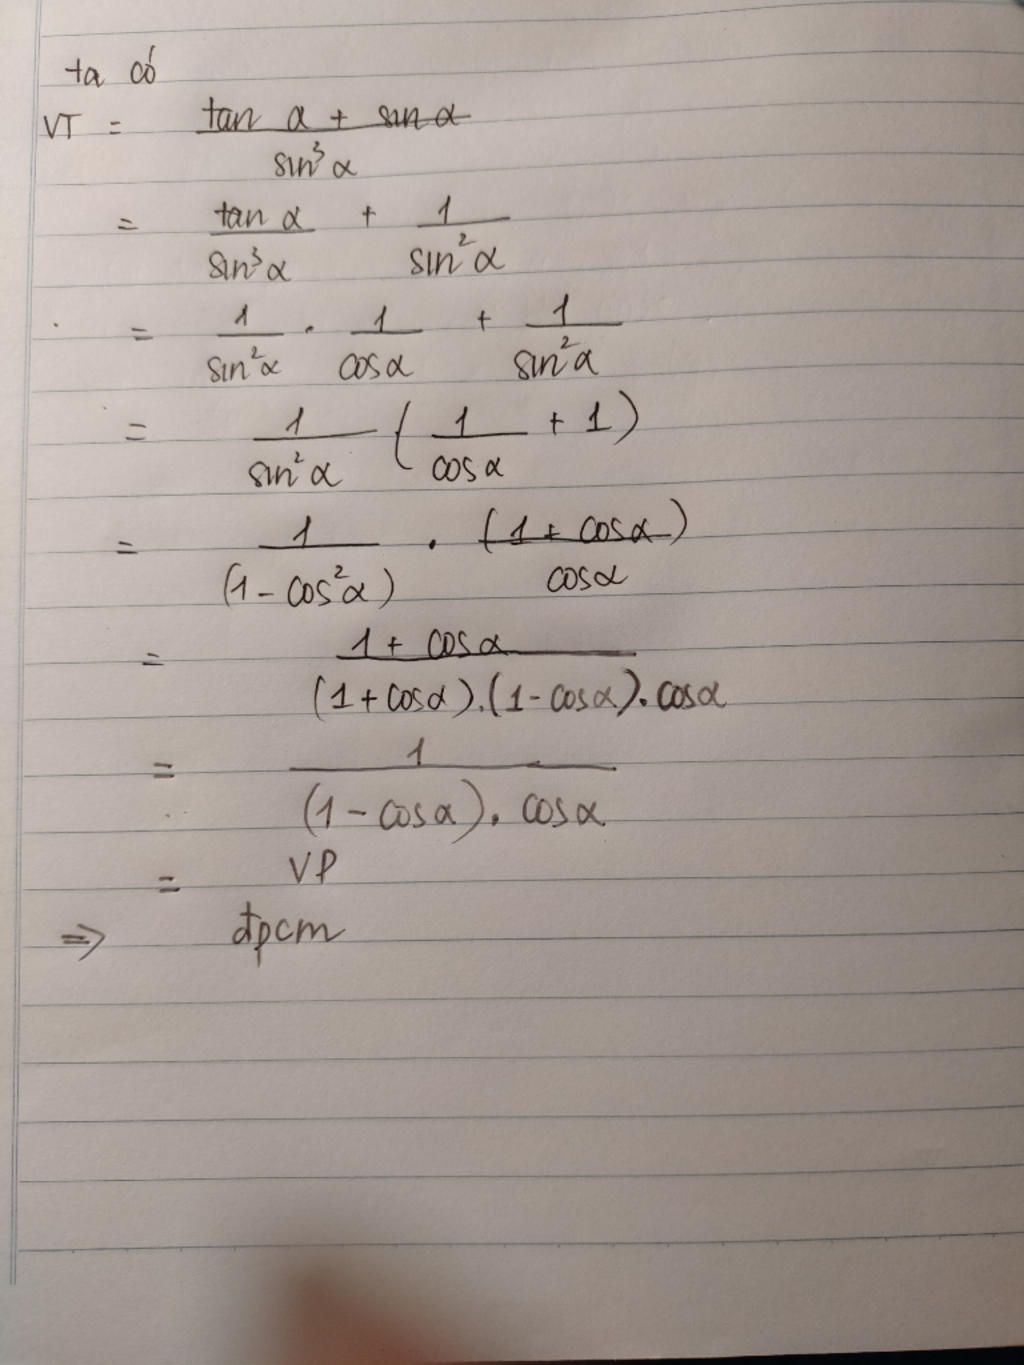 ta có
VT = (tan α + sin α) / sin³α
= tan α / sin³α + 1 / sin²α
= 1 / sin²α . 1 / cosα + 1 / sin²α
= 1 / sin²α ( 1 / cosα + 1 )
= 1 / (1 - cos²α) . (1 + cosα) / cosα
= 1 + cosα / (1 + cosα).(1 - cosα).cosα
= 1 / (1 - cosα). cosα
= VP
⇒ đpcm